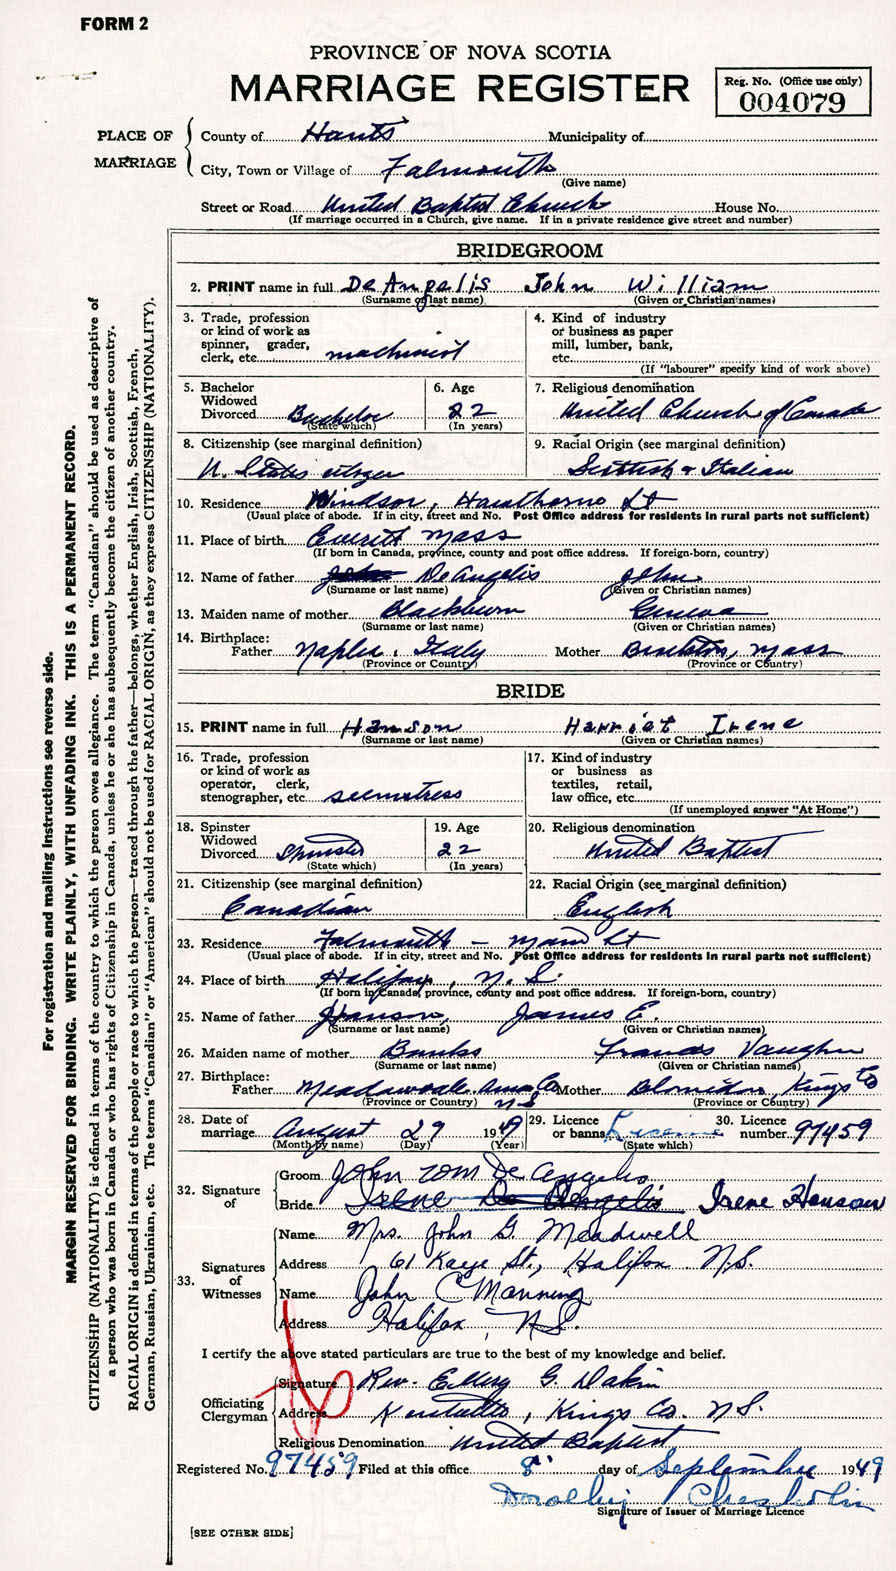 FORM 2
PROVINCE OF NOVA SCOTIA
MARRIAGE REGISTER
Reg. No. (Office use only)
004079
PLACE OF MARRIAGE
County of Hants Municipality of
City, Town or Village of Falmouth
(Give name)
Street or Road United Baptist Church House No.
(If marriage occurred in a Church, give name. If in a private residence give street and number)
BRIDEGROOM
2. PRINT name in full De Angelis John William
(Surname or last name) (Given or Christian names)
3. Trade, profession or kind of work as spinner, grader, clerk, etc. machinist
4. Kind of industry or business as paper mill, lumber, bank, etc.
(If "labourer" specify kind of work above)
5. Bachelor Widowed Divorced Bachelor
(State which)
6. Age 22
(In years)
7. Religious denomination
United Church of Canada
8. Citizenship (see marginal definition)
U. States citizen
9. Racial Origin (see marginal definition)
Scottish & Italian
10. Residence Windsor, Hawthorne St
(Usual place of abode. If in city, street and No. Post Office address for residents in rural parts not sufficient)
11. Place of birth Everitt Mass
(If born in Canada, province, county and post office address. If foreign-born, country)
12. Name of father John DeAngelis John
(Surname or last name) (Given or Christian names)
13. Maiden name of mother Blackburn Geneva
(Surname or last name) (Given or Christian names)
14. Birthplace:
Father Naples, Italy Mother Mass
(Province or Country) (Province or Country)
BRIDE
15. PRINT name in full Hanson Harriet Irene
(Surname or last name) (Given or Christian names)
16. Trade, profession or kind of work as operator, clerk, stenographer, etc. seemstress
17. Kind of industry or business as textiles, retail, law office, etc.
(If unemployed answer "At Home")
18. Spinster Widowed Divorced Spinster
(State which)
19. Age 22
(In years)
20. Religious denomination
United Baptist
21. Citizenship (see marginal definition)
Canadian
22. Racial Origin (see marginal definition)
English
23. Residence Falmouth - Main St
(Usual place of abode. If in city, street and No. Post Office address for residents in rural parts not sufficient)
24. Place of birth Halifax, N.S.
(If born in Canada, province, county and post office address. If foreign-born, country)
25. Name of father Hanson, James E.
(Surname or last name) (Given or Christian names)
26. Maiden name of mother Banks Frances Vaughn
(Surname or last name) (Given or Christian names)
27. Birthplace:
Father Meadowvale Anna Co N.S. Mother Blomidon, Kings Co
(Province or Country) (Province or Country)
28. Date of marriage August 29 1949
(Month by name) (Day) (Year)
29. Licence or banns License
(State which)
30. Licence number 97459
32. Signature of
Groom John Wm De Angelis
Bride Irene De Angelis Irene Hanson
33. Signatures of Witnesses
Name Mrs. John G. Meadwell
Address 61 Kaye St., Halifax N.S.
Name John C Manning
Address Halifax, N.S.
I certify the above stated particulars are true to the best of my knowledge and belief.
Officiating Clergyman
Signature Rev. Ellery G. Dakin
Address Kings Co. N.S.
Religious Denomination United Baptist
Registered No. 97459 Filed at this office 8 day of September 1949
Dorothy Chisholm
Signature of Issuer of Marriage Licence
[SEE OTHER SIDE]
For registration and mailing instructions see reverse side.
MARGIN RESERVED FOR BINDING. WRITE PLAINLY, WITH UNFADING INK. THIS IS A PERMANENT RECORD.
CITIZENSHIP (NATIONALITY) is defined in terms of the country to which the person owes allegiance. The term "Canadian" should be used as descriptive of
a person who was born in Canada or who has rights of Citizenship in Canada, unless he or she has subsequently become the citizen of another country.
RACIAL ORIGIN is defined in terms of the people or race to which the person—traced through the father—belongs, whether English, Irish, Scottish, French,
German, Russian, Ukrainian, etc. The terms "Canadian" or "American" should not be used for RACIAL ORIGIN, as they express CITIZENSHIP (NATIONALITY).